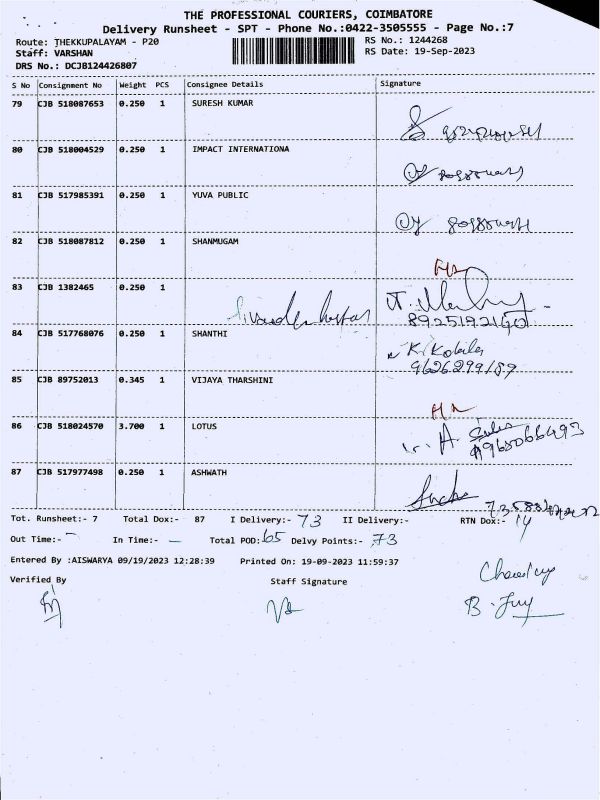 THE PROFESSIONAL COURIERS, COIMBATORE
Delivery Runsheet - SPT - Phone No.:0422-3505555 - Page No.:7
Route: THEKKUPALAYAM - P20
RS No.: 1244268
Staff: VARSHAN
RS Date: 19-Sep-2023
DRS No.: DCJB124426807
S No Consignment No Weight PCS Consignee Details Signature
79 CJB 518087653 0.250 1 SURESH KUMAR
80 CJB 518004529 0.250 1 IMPACT INTERNATIONA
81 CJB 517985391 0.250 1 YUVA PUBLIC
82 CJB 518087812 0.250 1 SHANMUGAM
83 CJB 1382465 0.250 1
8925192140
84 CJB 517768076 0.250 1 SHANTHI K. Kokala
9626299189
85 CJB 89752013 0.345 1 VIJAYA THARSHINI
86 CJB 518024570 3.700 1 LOTUS
87 CJB 517977498 0.250 1 ASHWATH
Tot. Runsheet:- 7 Total Dox:- 87 I Delivery:- 73 II Delivery:- RTN Dox:- 14
Out Time:- In Time:- Total POD: 65 Delvy Points:- 73
Entered By :AISWARYA 09/19/2023 12:28:39 Printed On: 19-09-2023 11:59:37
Verified By Staff Signature